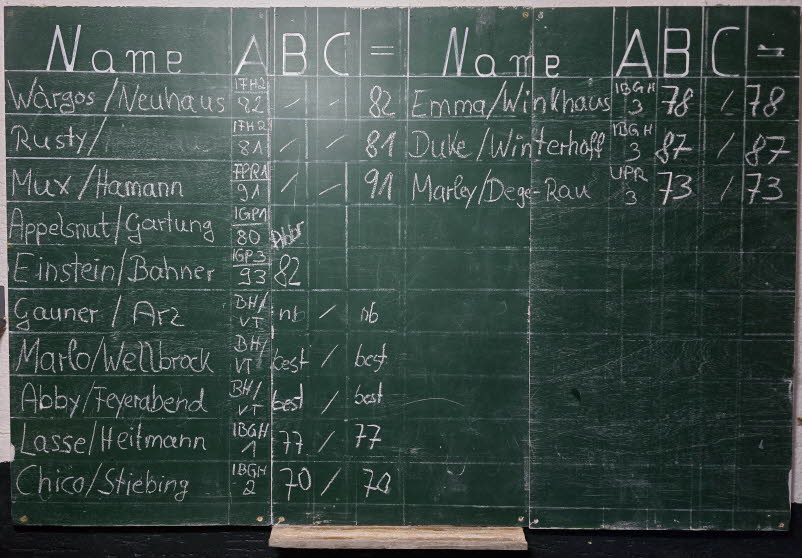 Name A B C = Name A B C =
Wargos/Neuhaus IFH2 82 / - 82 Emma/Winkhaus IBGH 3 78 / 78
Rusty/ IFH2 81 / - 81 Duke/Winterhoff IBGH 3 87 / 87
Mux/Hamann FPR1 91 / - 91 Marley/Dege-Rau UPR 3 73 / 73
Appelsnut/Gartung IGP1 80 Abbr
Einstein/Bahner IGP3 93 82
Gauner / Arz BH/VT nb / nb
Marlo/Wellbrock BH/VT best / best
Abby/Feyerabend BH/VT best / best
Lasse/Heitmann IBGH 1 77 / 77
Chico/Stiebing IBGH 2 70 / 70